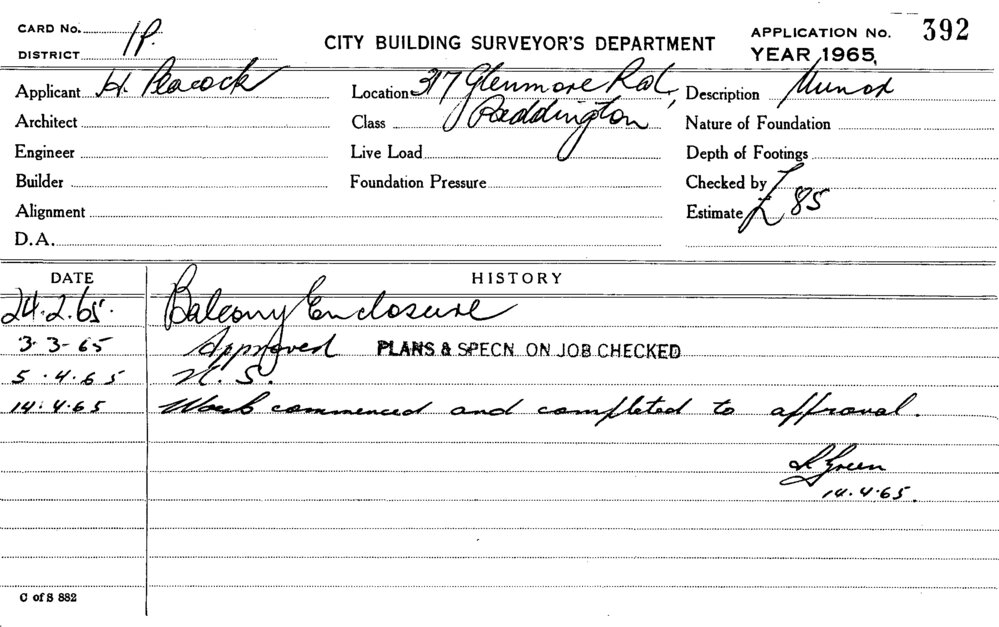 CARD No. 1P. CITY BUILDING SURVEYOR'S DEPARTMENT APPLICATION No. 392
DISTRICT YEAR 1965,
Applicant H. Peacock Location 317 Glenmore Rd., Description Minor
Architect Class Paddington Nature of Foundation
Engineer Live Load Depth of Footings
Builder Foundation Pressure Checked by
Alignment Estimate £85
D.A.
DATE HISTORY
24.2.65. Balcony Enclosure
3 3-65 Approved PLANS & SPECN. ON JOB CHECKED
5.4.65 N.S.
14.4.65 Work commenced and completed to approval.
Green
14.4.65.
C of S 882